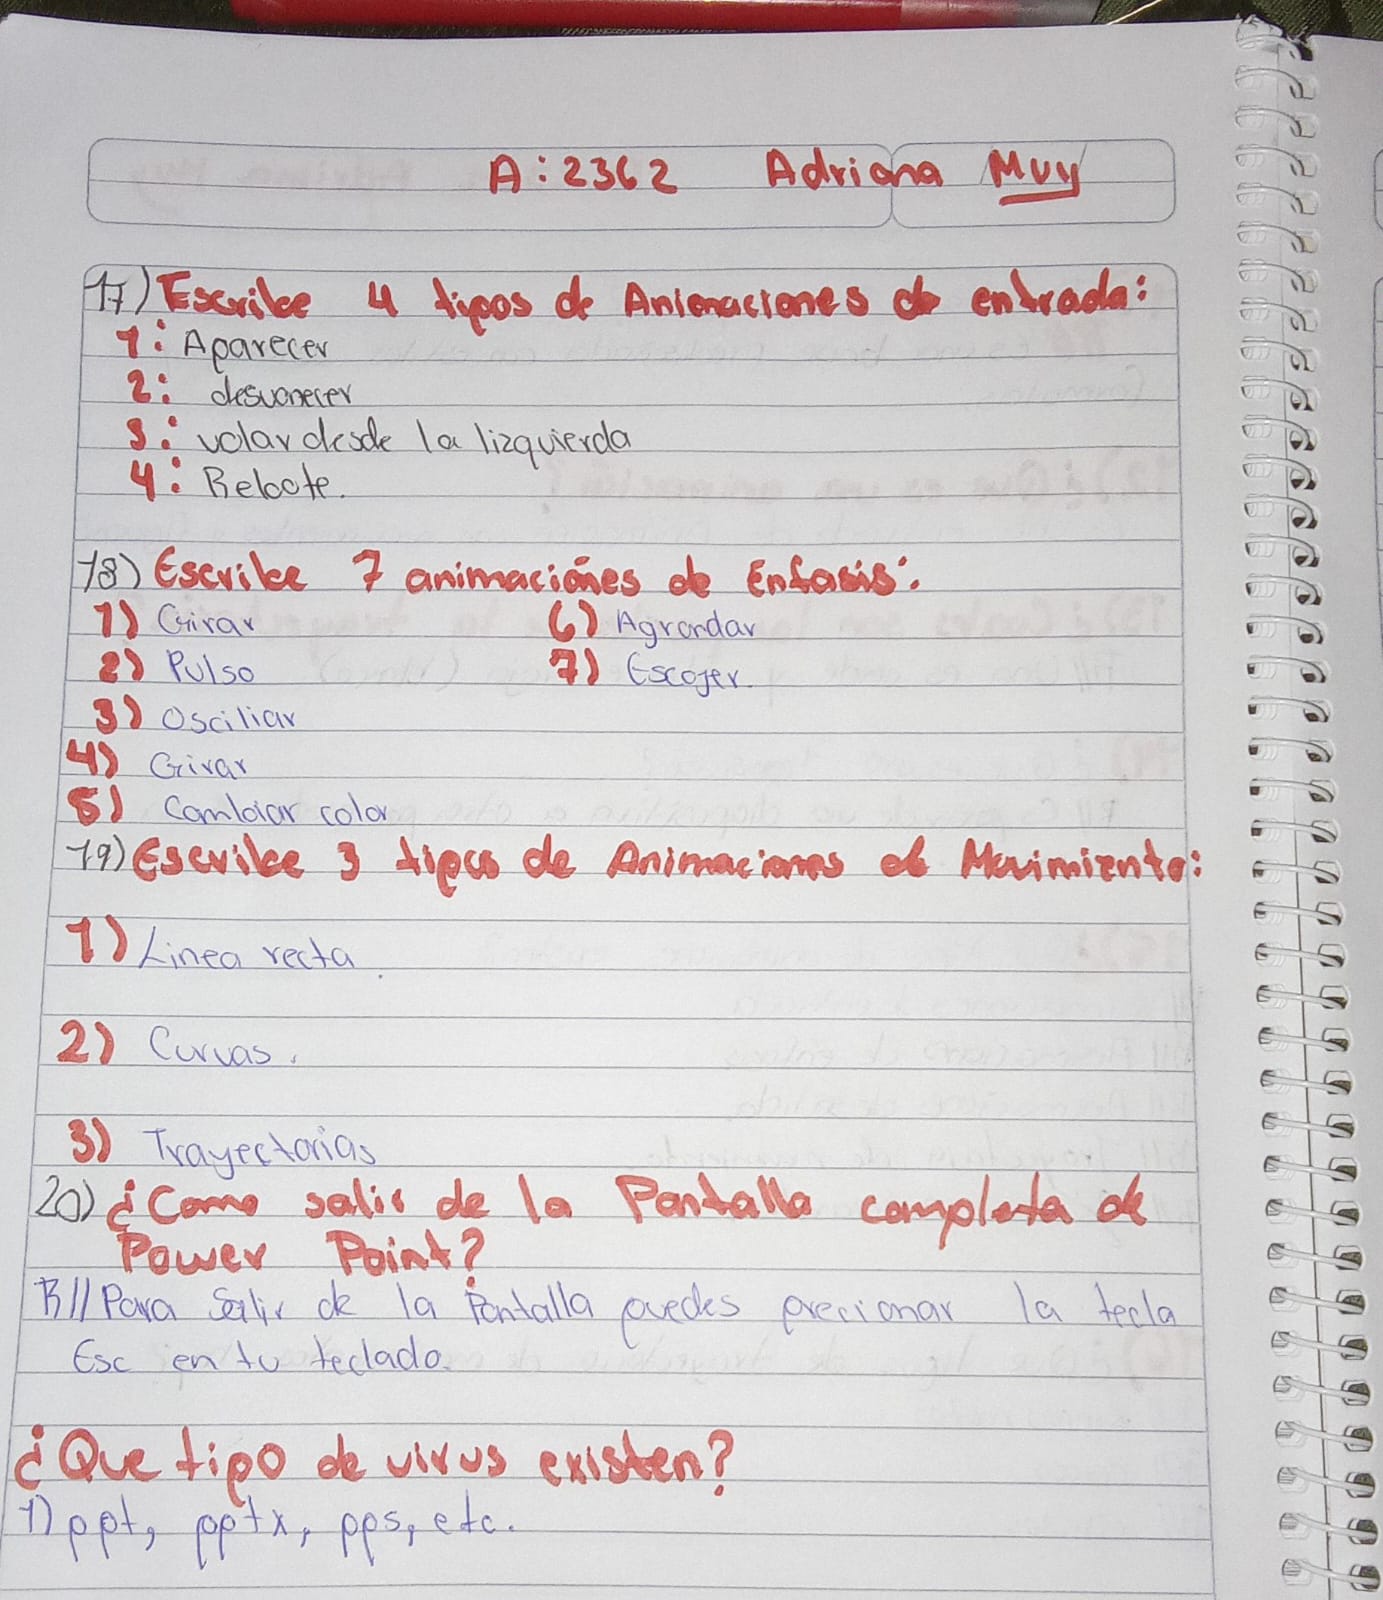 A: 2362 Adriana Muy
17) Escribe 4 tipos de Animaciones de entrada:
1: Aparecer
2: desvanecer
3: volar desde la lizquierda
4: Rebote.
18) Escribe 7 animaciones de Enfasis:
1) Girar
2) Pulso
3) Osciliar
4) Girar
5) Cambiar color
6) Agrandar
7) Escojer.
19) Escribe 3 tipos de Animaciones de Movimiento:
1) Linea recta.
2) Curvas.
3) Trayectorias
20) ¿Como salir de la Pantalla completa de
Power Point?
R// Para Salir de la Pantalla puedes precionar la tecla
Esc en tu teclado.
¿Que tipo de virus existen?
1) ppt, pptx, pps, etc.